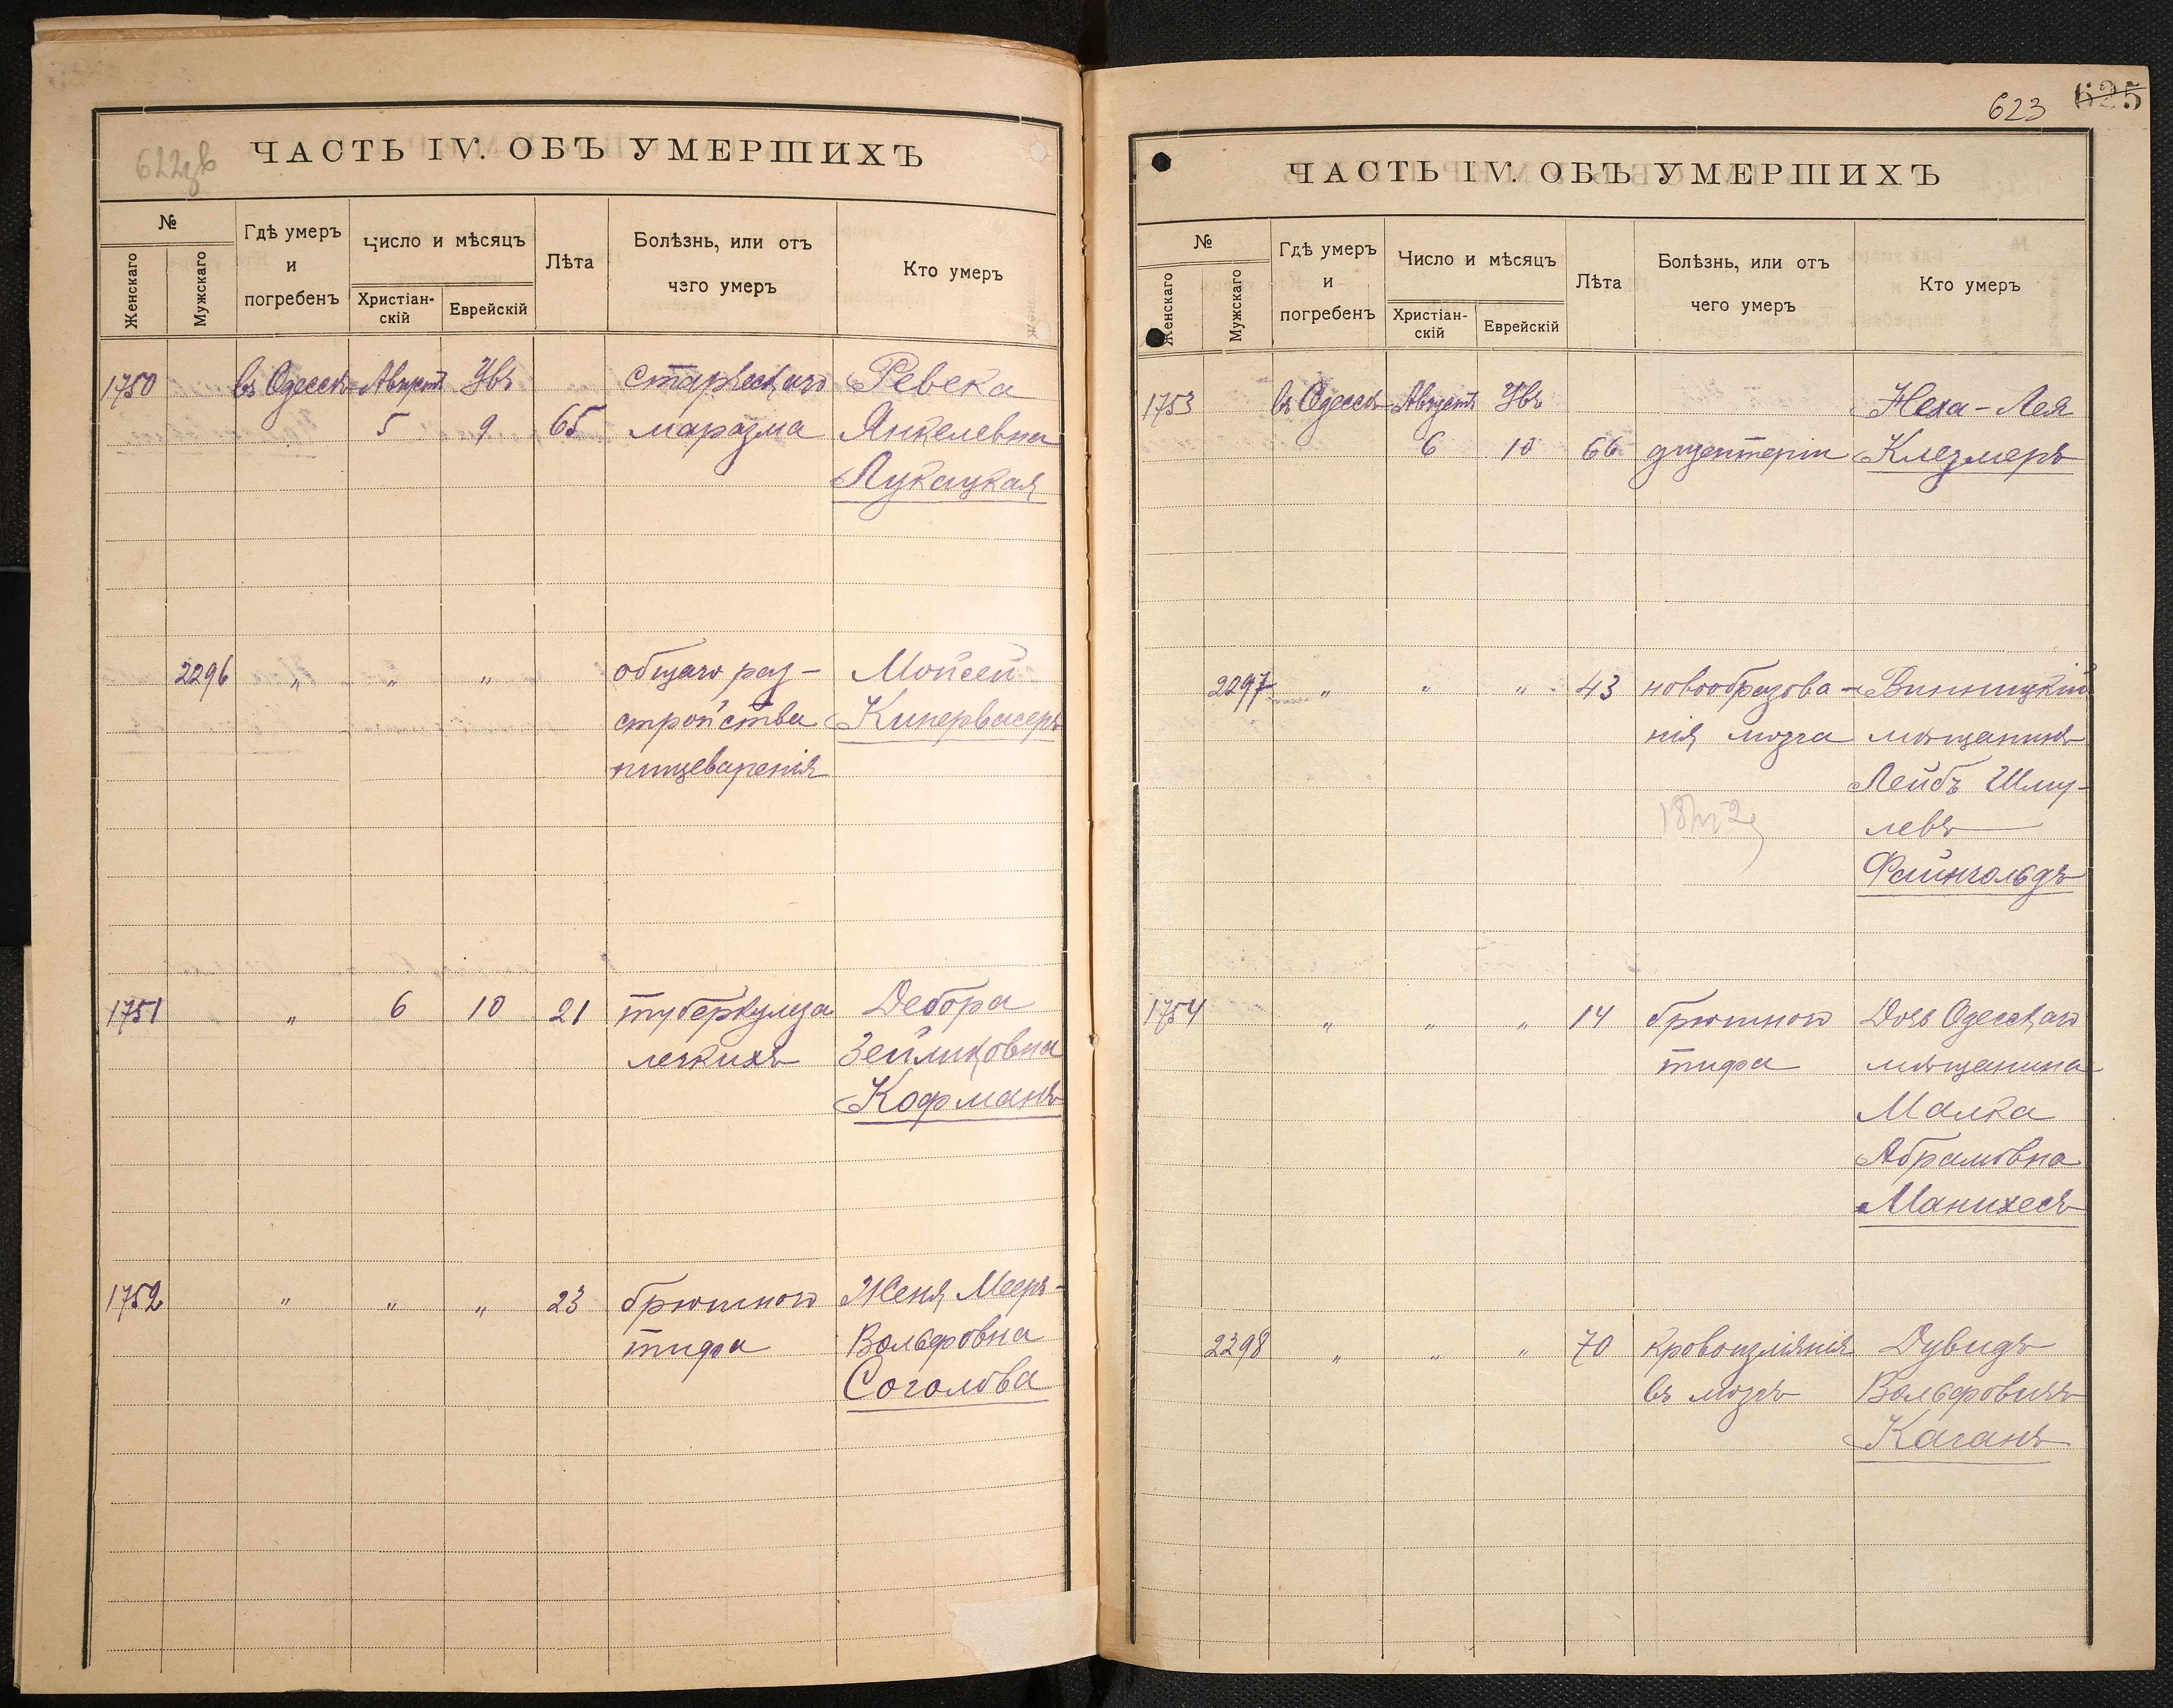 622зв
ЧАСТЬ IV. ОБЪ УМЕРШИХЪ
№
Женскаго
Мужскаго
Гдѣ умеръ
и
погребенъ
Число и мѣсяцъ
Христіан-
скій
Еврейскій
Лѣта
Болѣзнь, или отъ
чего умеръ
Кто умеръ
1750 въ Одессѣ Августъ Увъ старческаго Ревека
5 9 65 маразма Янкелевна
Лукацкая
2296 " " " общаго раз- Мойсей
стройства Кипервасеръ
пищеваренія
1751 " 6 10 21 туберкулеза Дебора
легкихъ Зейликовна
Кофманъ
1752 " " " 23 брюшного Женя Меер-
тифа Вольфовна
Соголова
623 625
ЧАСТЬ IV. ОБЪ УМЕРШИХЪ
№
Женскаго
Мужскаго
Гдѣ умеръ
и
погребенъ
Число и мѣсяцъ
Христіан-
скій
Еврейскій
Лѣта
Болѣзнь, или отъ
чего умеръ
Кто умеръ
1753 въ Одессѣ Августъ Увъ Неха-Лея
6 10 66 дизентеріи Клезмеръ
2297 " " " 43 новообразова- Винницкій
нія мозга мѣщанинъ
Лейбъ Шму-
левъ
Файнгольдъ
1754 " " " 14 брюшного Дочь Одесскаго
тифа мѣщанина
Малка
Абрамовна
Манихесъ
2298 " " " 70 кровоизліянія Дувидъ
въ мозгъ Вольфовичъ
Каганъ